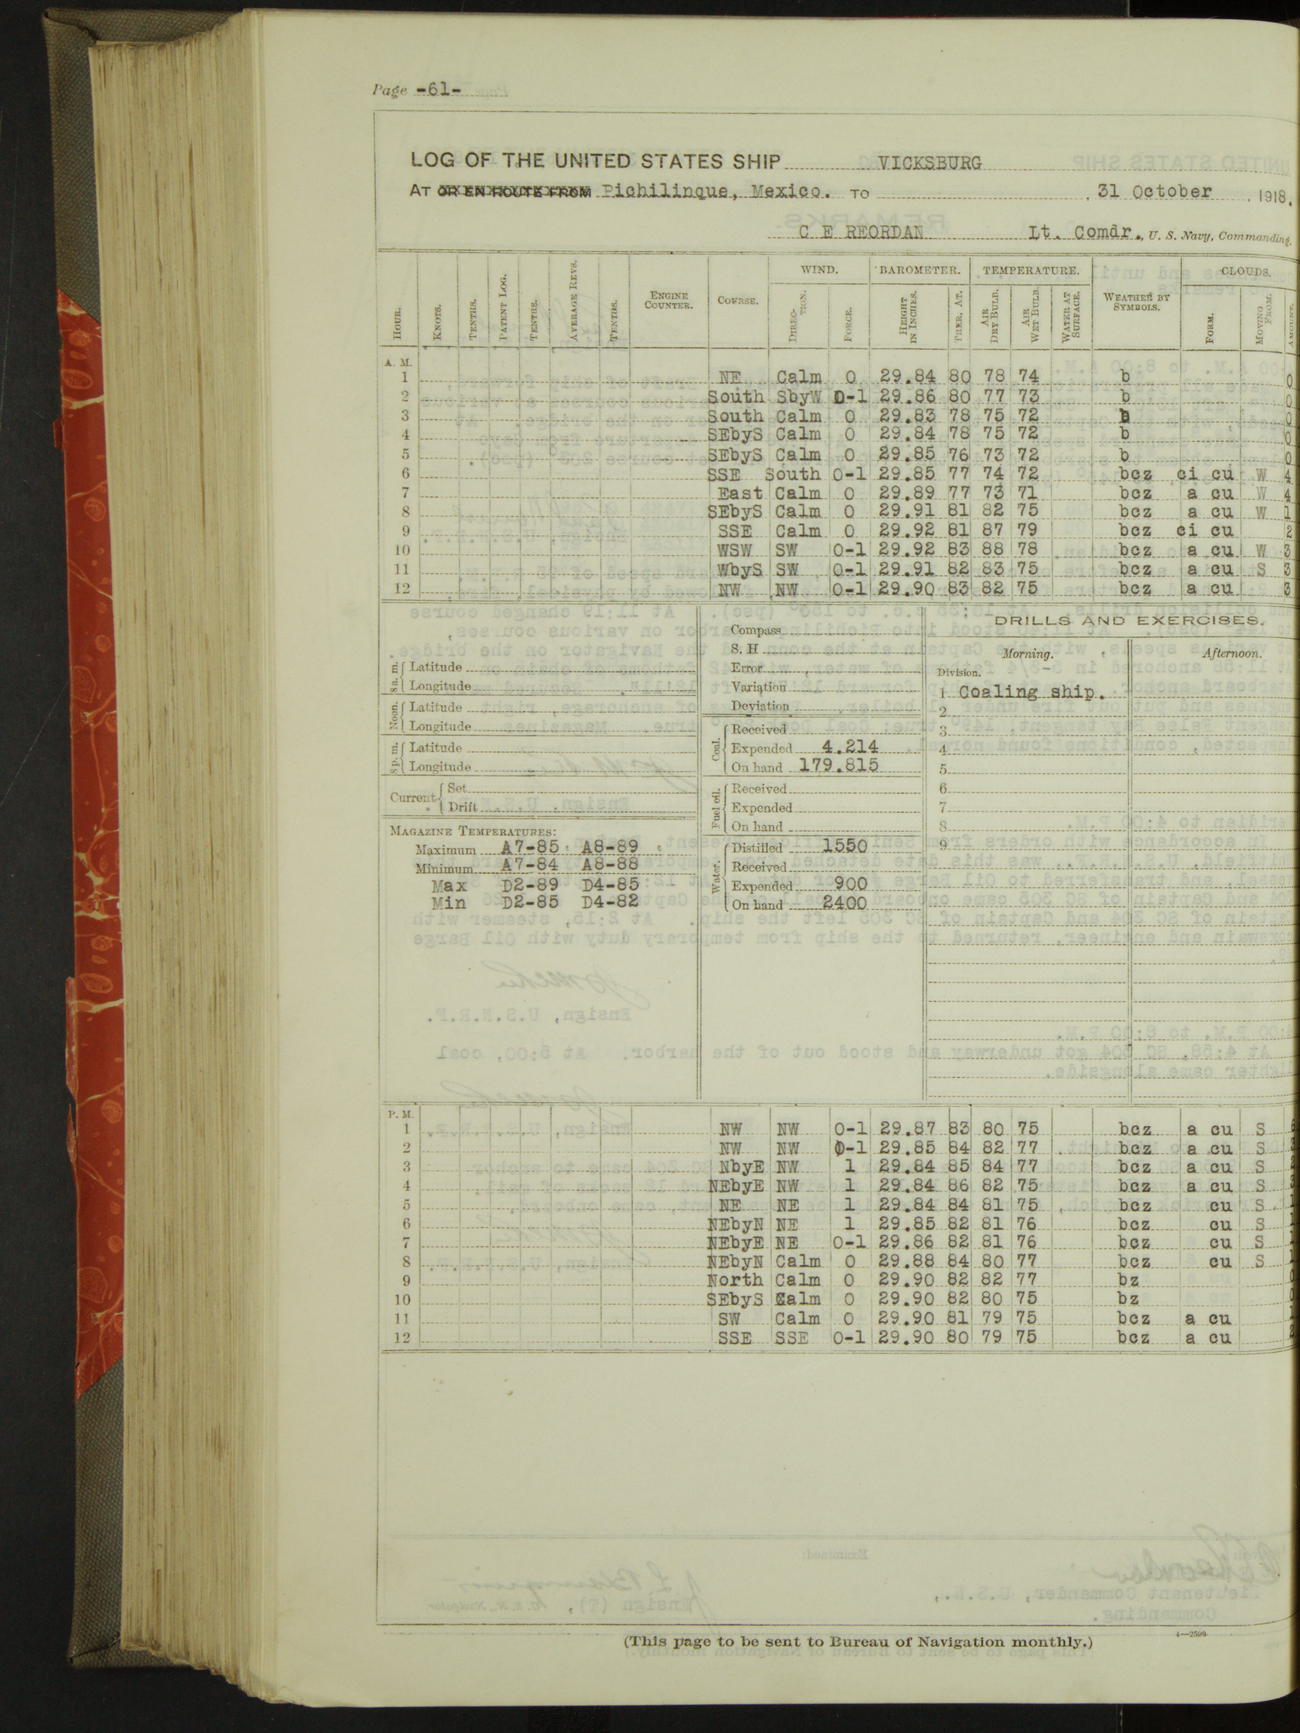 Page -61-
LOG OF THE UNITED STATES SHIP VICKSBURG
AT OR EN ROUTE FROM Pichilinque, Mexico. TO , 31 October , 1918.
C E REORDAN Lt. Comdr., U. S. Navy, Commanding.
HOUR. KNOTS. TENTHS. PATENT LOG. TENTHS. AVERAGE REVS. TENTHS. ENGINE COUNTER. COURSE. WIND. DIRECTION. FORCE. BAROMETER. HEIGHT IN INCHES. THER. AT. TEMPERATURE. AIR DRY BULB. AIR WET BULB. WATER AT SURFACE. WEATHER BY SYMBOLS. CLOUDS. FORM. MOVING FROM. AMOUNT.
A. M.
1 NE Calm 0 29.84 80 78 74 b 0
2 South SbyW 0-1 29.86 80 77 73 b 0
3 South Calm 0 29.83 78 75 72 b 0
4 SEbyS Calm 0 29.84 78 75 72 b 0
5 SEbyS Calm 0 29.85 76 73 72 b 0
6 SSE South 0-1 29.85 77 74 72 bcz ci cu W 4
7 East Calm 0 29.89 77 73 71 bcz a cu W 4
8 SEbyS Calm 0 29.91 81 82 75 bcz a cu W 1
9 SSE Calm 0 29.92 81 87 79 bcz ci cu 2
10 WSW SW 0-1 29.92 83 88 78 bcz a cu W 3
11 WbyS SW 0-1 29.91 82 83 75 bcz a cu S 3
12 NW NW 0-1 29.90 83 82 75 bcz a cu 3
8 a. m. Latitude
Longitude
Noon. Latitude
Longitude
8 p. m. Latitude
Longitude
Current Set
Drift
MAGAZINE TEMPERATURES:
Maximum A7-85 A8-89
Minimum A7-84 A8-88
Max D2-89 D4-85
Min D2-85 D4-82
Compass
S. H
Error
Variation
Deviation
Coal. Received
Expended 4.214
On hand 179.815
Fuel oil. Received
Expended
On hand
Water. Distilled 1550
Received
Expended 900
On hand 2400
DRILLS AND EXERCISES.
Morning. Afternoon.
Division.
1 Coaling ship.
2
3
4
5
6
7
8
9
P. M.
1 NW NW 0-1 29.87 83 80 75 bcz a cu S
2 NW NW 0-1 29.85 84 82 77 bcz a cu S
3 NbyE NW 1 29.84 85 84 77 bcz a cu S
4 NEbyE NW 1 29.84 86 82 75 bcz a cu S
5 NE NE 1 29.84 84 81 75 bcz cu S
6 NEbyN NE 1 29.85 82 81 76 bcz cu S
7 NEbyE NE 0-1 29.86 82 81 76 bcz cu S
8 NEbyN Calm 0 29.88 84 80 77 bcz cu S
9 North Calm 0 29.90 82 82 77 bz
10 SEbyS Calm 0 29.90 82 80 75 bz
11 SW Calm 0 29.90 81 79 75 bcz a cu
12 SSE SSE 0-1 29.90 80 79 75 bcz a cu
(This page to be sent to Bureau of Navigation monthly.)
4—2599